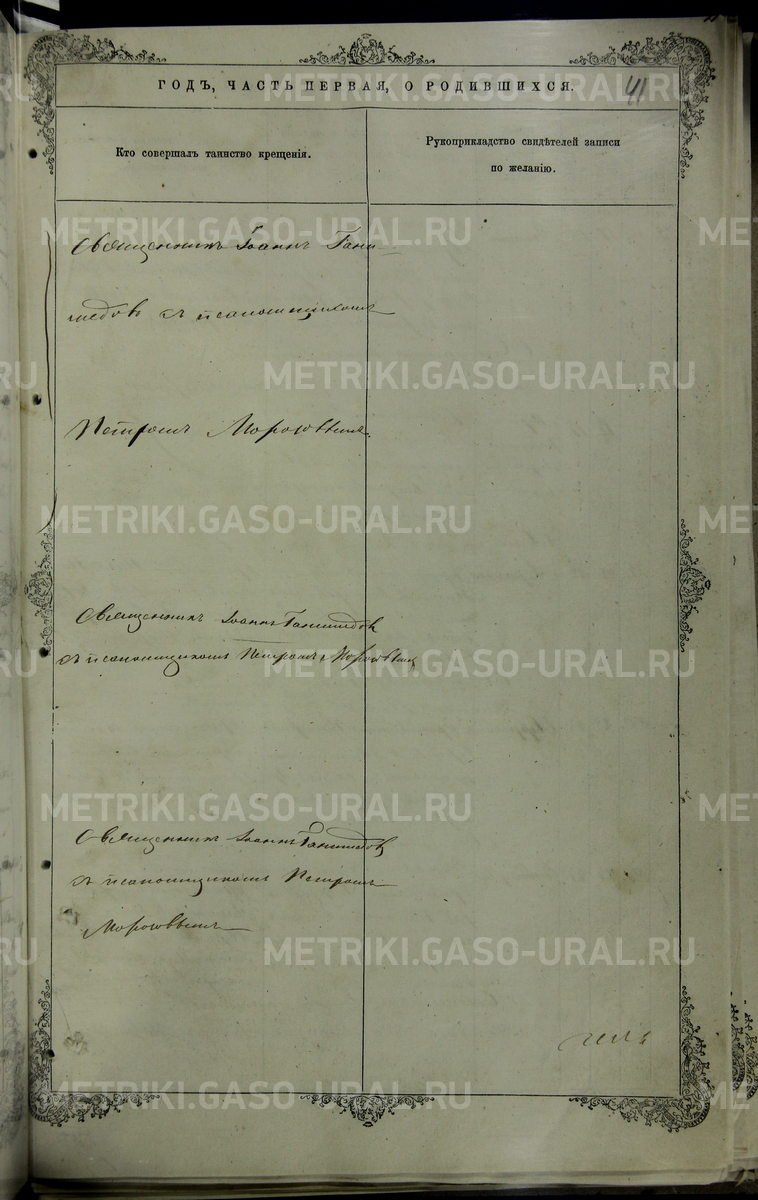 ГОДЪ, ЧАСТЬ ПЕРВАЯ, О РОДИВШИХСЯ.
41
Кто совершалъ таинство крещенія.
Рукоприкладство свидѣтелей записи
по желанію.
Священникъ Іоаннъ Гани-
медовъ съ псаломщикомъ
Петромъ Морозовымъ.
Священникъ Іоаннъ Ганимедовъ
съ псаломщикомъ Петромъ Морозовымъ
Священникъ Іоаннъ Ганимедовъ
съ псаломщикомъ Петромъ
Морозовымъ
METRIKI.GASO-URAL.RU